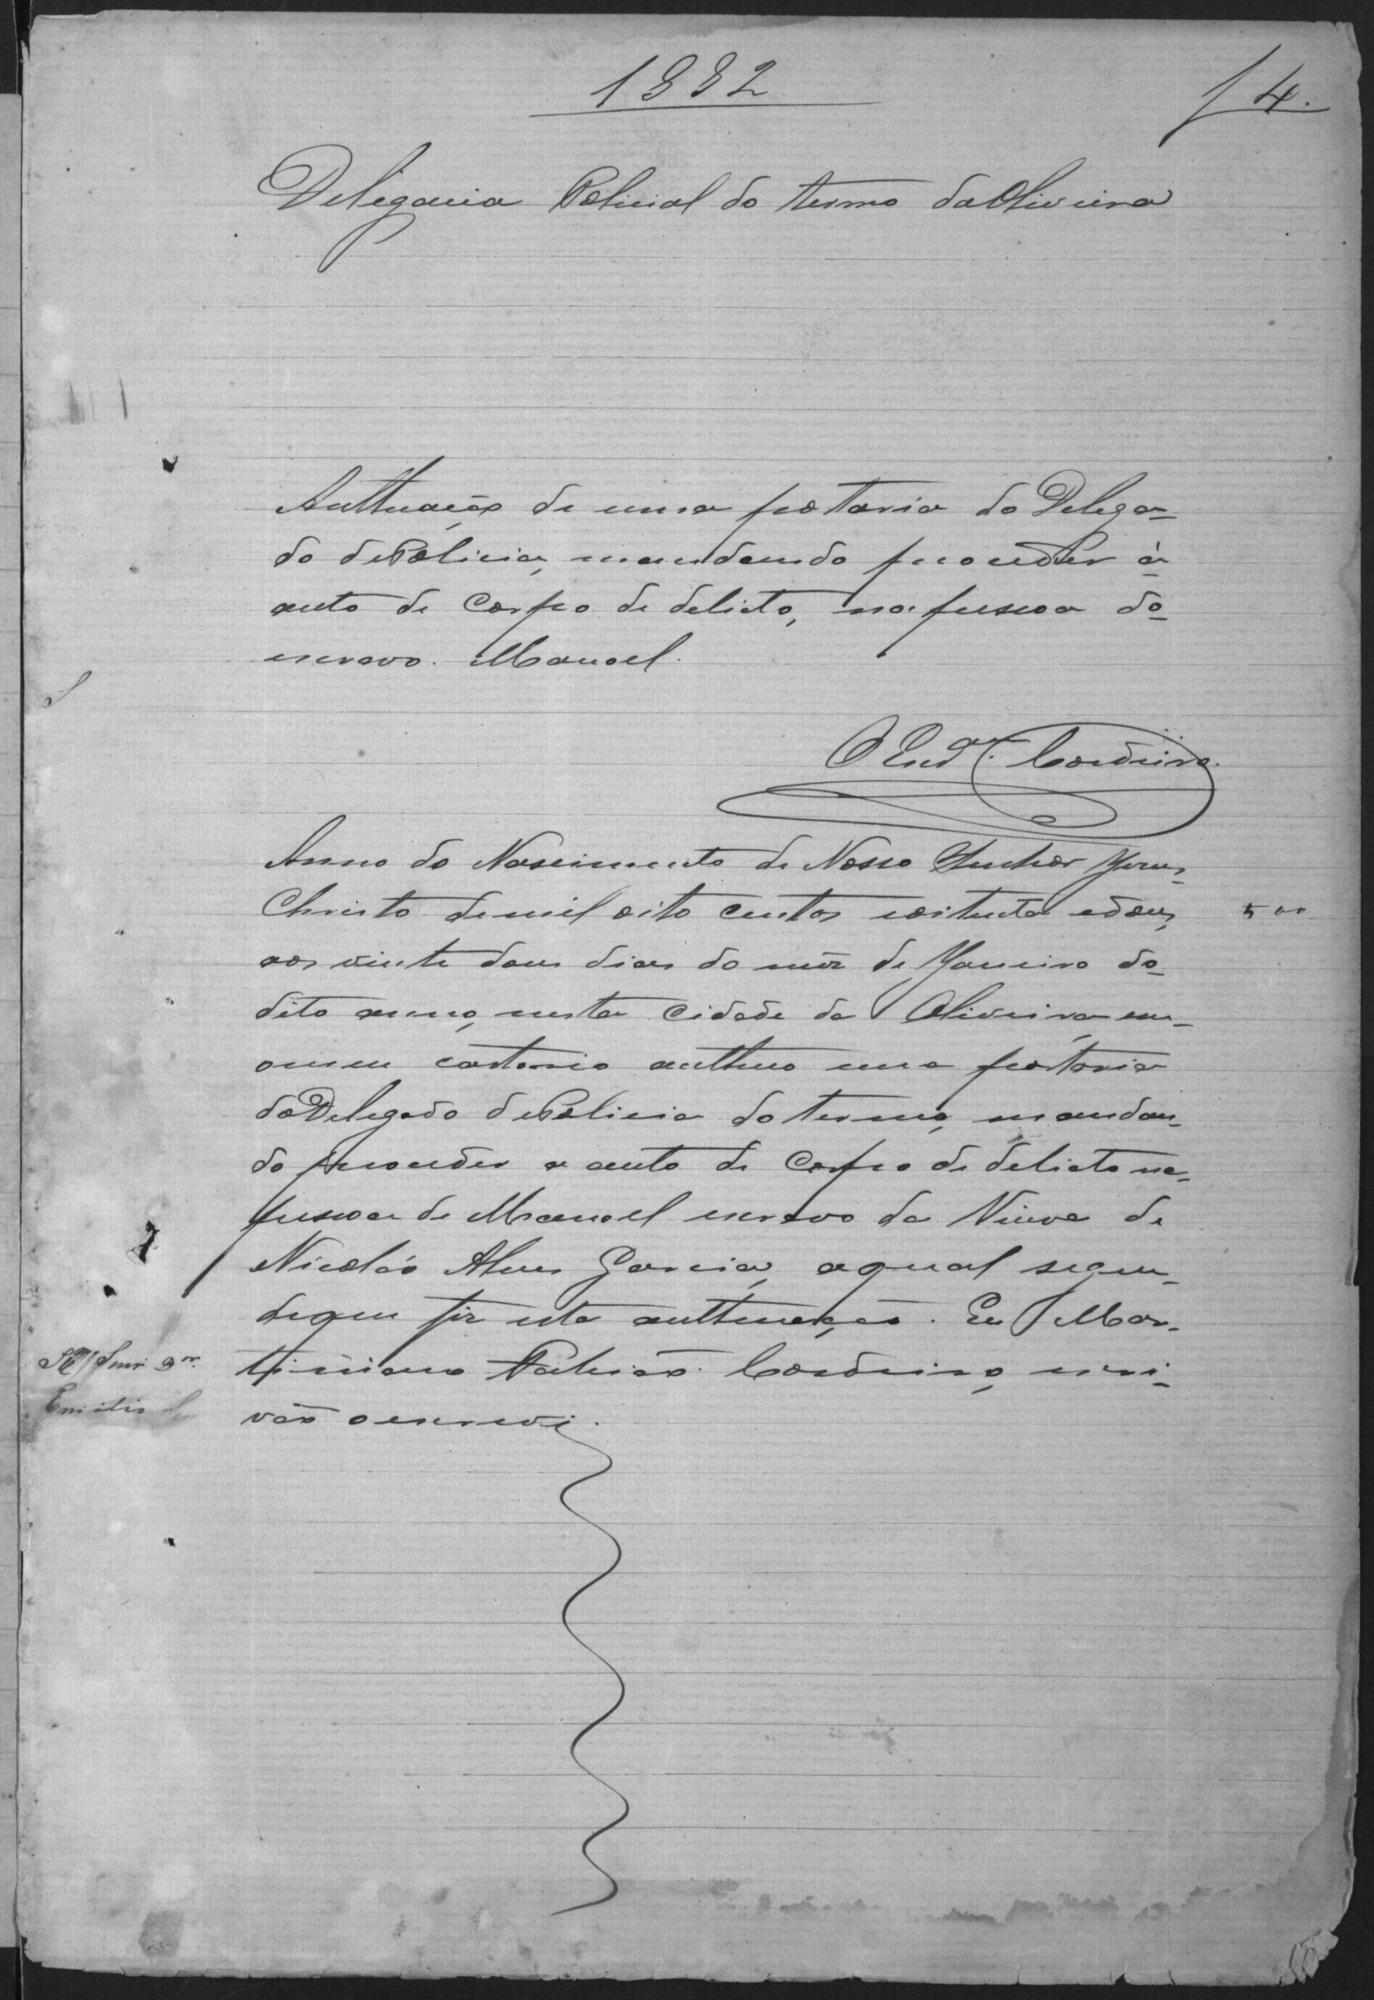 1882
f 4.
Delegacia Policial do termo da Oliveira
Authuação de uma portaria do Delega-
do de Policia, mandando proceder á
auto de Corpo de delicto, na pessoa do
escravo Manoel.
O Escr.ᵃᵐ Cordeiro.
Anno do Nascimento de Nosso Senhor Jesus
Christo de mil oito centos e oitenta e dous,
aos vinte dous dias do mez de Janeiro do
dito anno, nesta Cidade da Oliveira, em
o meu cartorio authuo uma portaria
do Delegado de Policia do termo, mandan-
do proceder a auto de Corpo de delicto na
pessoa de Manoel escravo da Viuva de
Nicoláo Alves Garcia, a qual segue,
do que fiz esta authuação. Eu Mar-
tiniano Patricio Cordeiro, escri-
vão o escrevi.
500